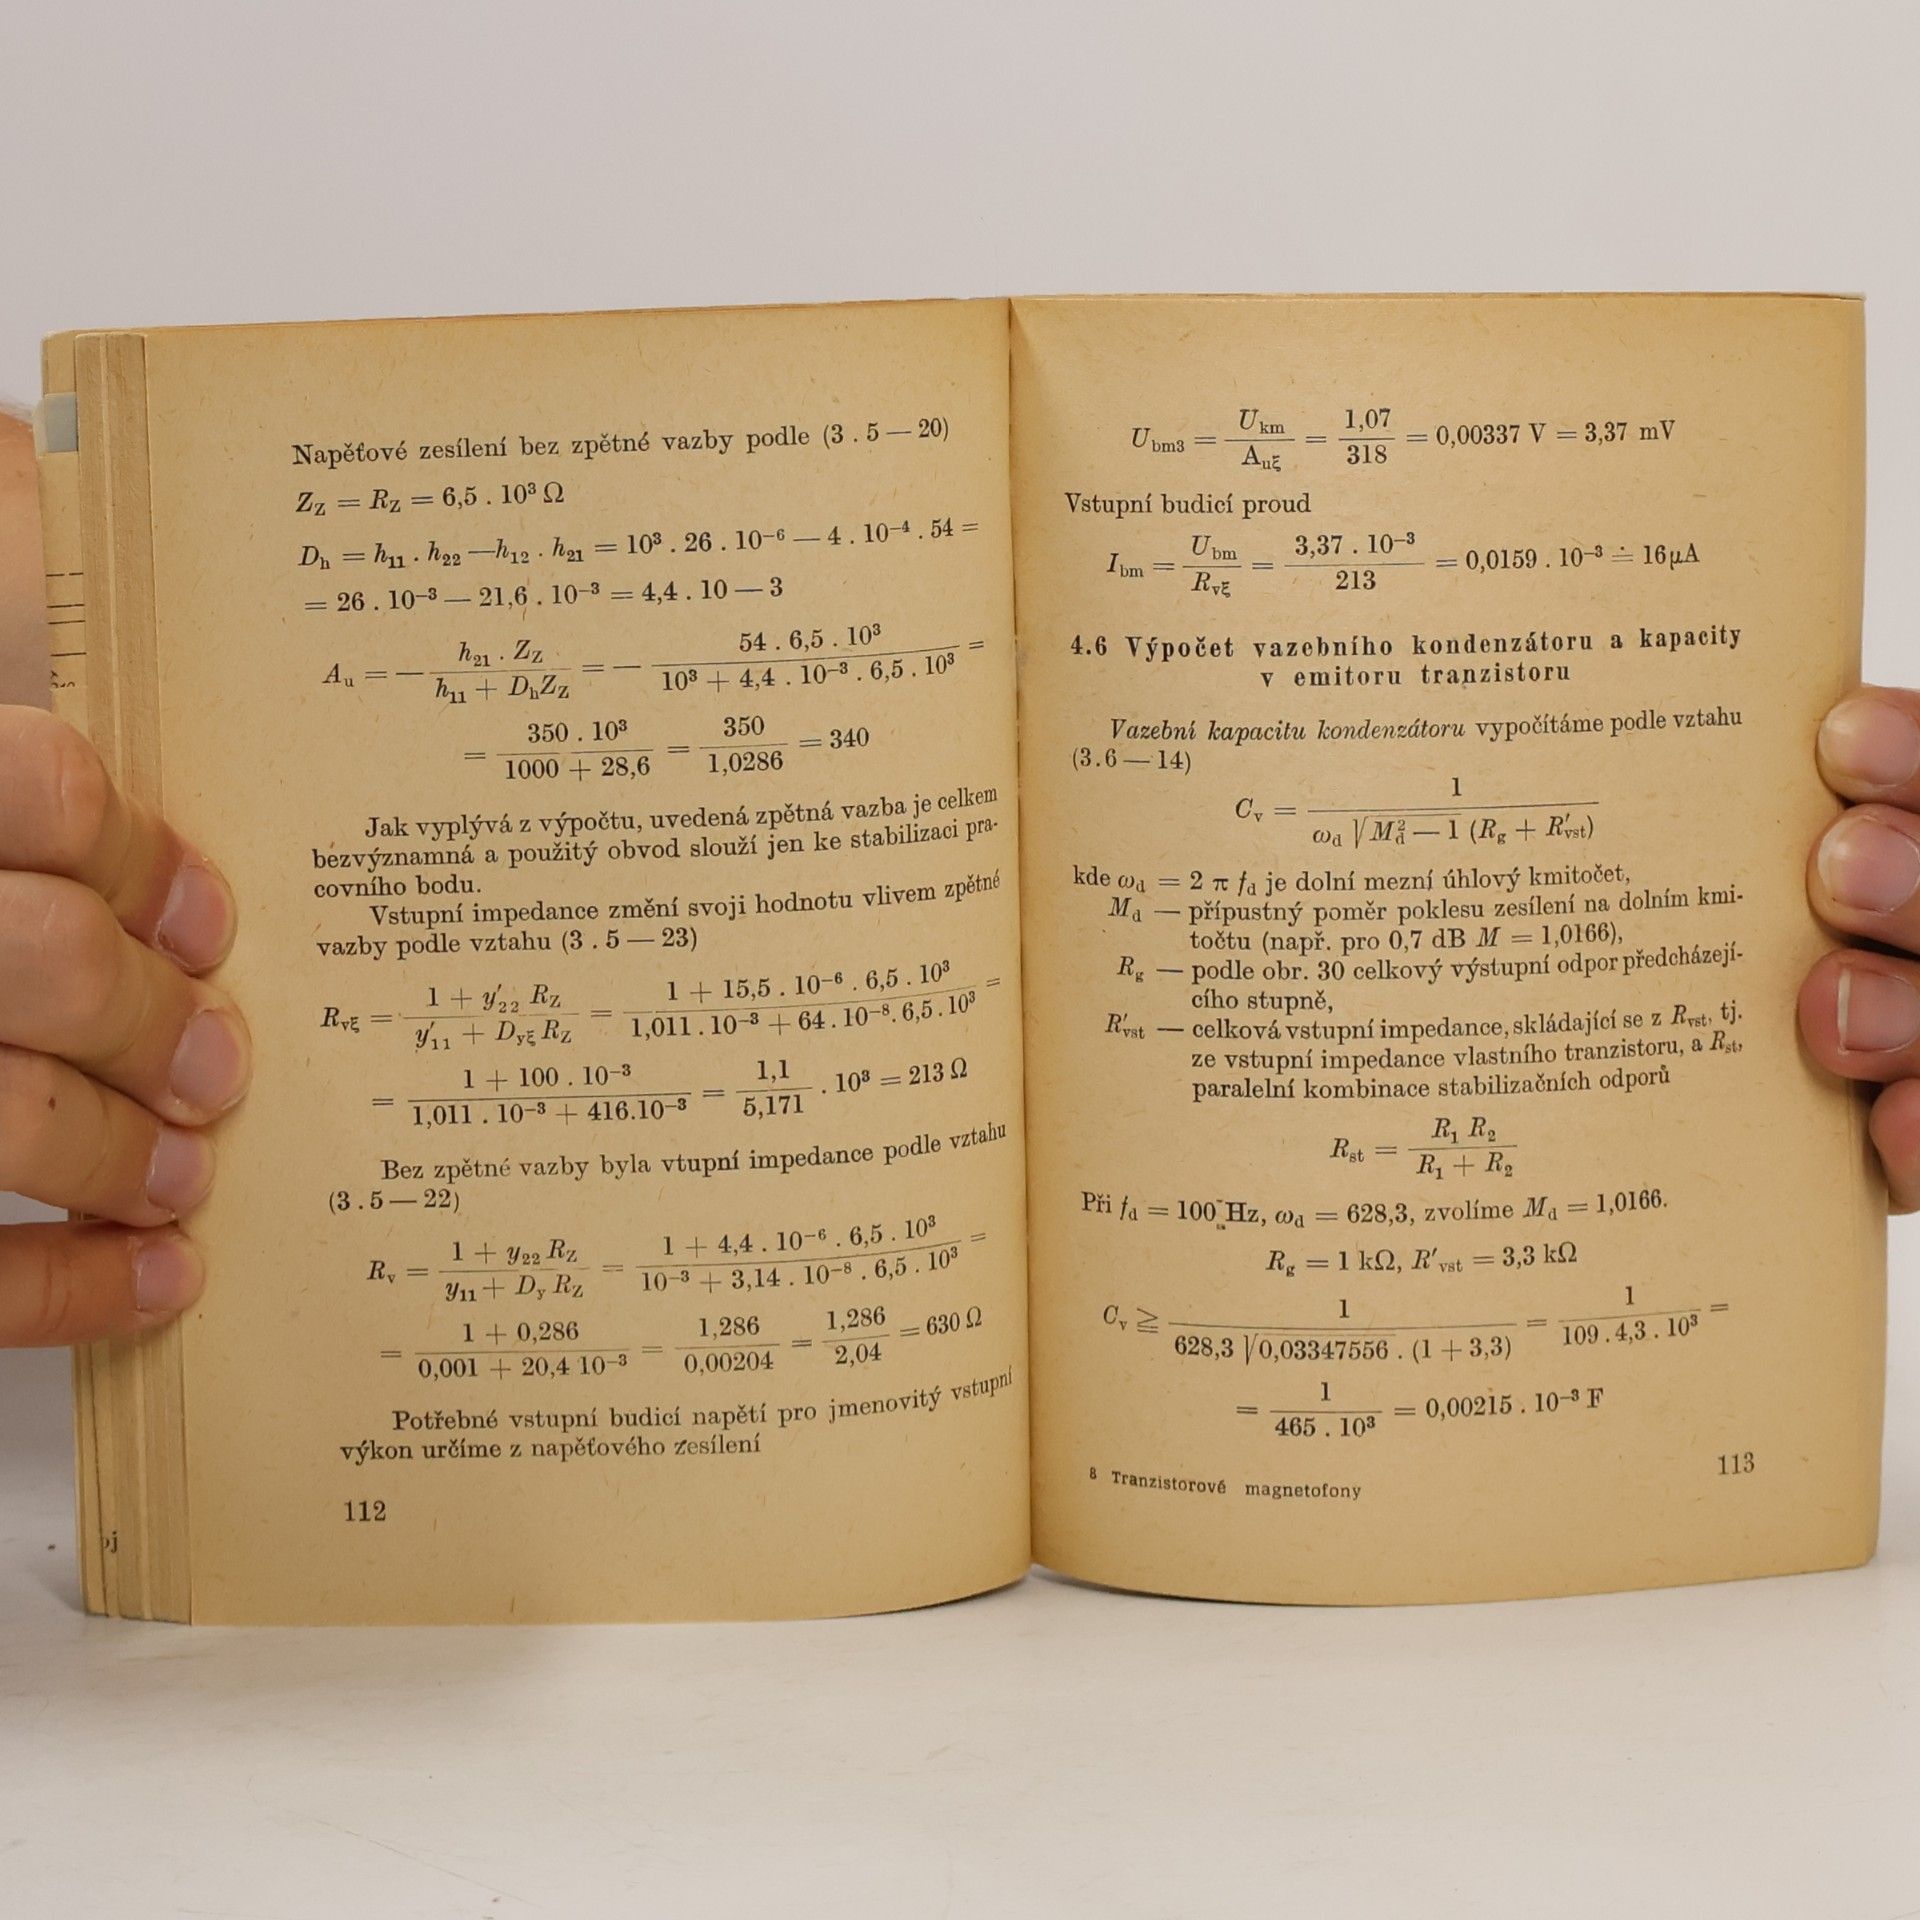 Napěťové zesílení bez zpětné vazby podle (3 . 5 — 20)
Z_Z = R_Z = 6,5 . 10³ Ω
D_h = h₁₁ . h₂₂ — h₁₂ . h₂₁ = 10³ . 26 . 10⁻⁶ — 4 . 10⁻⁴ . 54 =
= 26 . 10⁻³ — 21,6 . 10⁻³ = 4,4 . 10 — 3
A_u = — (h₂₁ . Z_Z) / (h₁₁ + D_h Z_Z) = — (54 . 6,5 . 10³) / (10³ + 4,4 . 10⁻³ . 6,5 . 10³) =
= (350 . 10³) / (1000 + 28,6) = 350 / 1,0286 = 340
Jak vyplývá z výpočtu, uvedená zpětná vazba je celkem
bezvýznamná a použitý obvod slouží jen ke stabilizaci pra-
covního bodu.
Vstupní impedance změní svoji hodnotu vlivem zpětné
vazby podle vztahu (3 . 5 — 23)
R_vξ = (1 + y′₂₂ R_Z) / (y′₁₁ + D_yξ R_Z) = (1 + 15,5 . 10⁻⁶ . 6,5 . 10³) / (1,011 . 10⁻³ + 64 . 10⁻⁸ . 6,5 . 10³) =
= (1 + 100 . 10⁻³) / (1,011 . 10⁻³ + 416.10⁻³) = 1,1 / 5,171 . 10³ = 213 Ω
Bez zpětné vazby byla vtupní impedance podle vztahu
(3 . 5 — 22)
R_v = (1 + y₂₂ R_Z) / (y₁₁ + D_y R_Z) = (1 + 4,4 . 10⁻⁶ . 6,5 . 10³) / (10⁻³ + 3,14 . 10⁻⁸ . 6,5 . 10³) =
= (1 + 0,286) / (0,001 + 20,4 10⁻³) = 1,286 / 0,00204 = 1,286 / 2,04 = 630 Ω
Potřebné vstupní budicí napětí pro jmenovitý vstupní
výkon určíme z napěťového zesílení
112
U_bm3 = U_km / A_uξ = 1,07 / 318 = 0,00337 V = 3,37 mV
Vstupní budicí proud
I_bm = U_bm / R_vξ = (3,37 . 10⁻³) / 213 = 0,0159 . 10⁻³ ≐ 16 μA
4.6 Výpočet vazebního kondenzátoru a kapacity
v emitoru tranzistoru
Vazební kapacitu kondenzátoru vypočítáme podle vztahu
(3.6 — 14)
C_v = 1 / (ω_d √(M_d² — 1) (R_g + R′_vst))
kde ω_d = 2 π f_d je dolní mezní úhlový kmitočet,
M_d — přípustný poměr poklesu zesílení na dolním kmi-
točtu (např. pro 0,7 dB M = 1,0166),
R_g — podle obr. 30 celkový výstupní odpor předcházejí-
cího stupně,
R′_vst — celková vstupní impedance, skládající se z R_vst, tj.
ze vstupní impedance vlastního tranzistoru, a R_st,
paralelní kombinace stabilizačních odporů
R_st = (R₁ R₂) / (R₁ + R₂)
Při f_d = 100 Hz, ω_d = 628,3, zvolíme M_d = 1,0166.
R_g = 1 kΩ, R′_vst = 3,3 kΩ
C_v ≧ 1 / (628,3 √0,03347556 . (1 + 3,3)) = 1 / (109 . 4,3 . 10³) =
= 1 / (465 . 10³) = 0,00215 . 10⁻³ F
8 Tranzistorové magnetofony
113